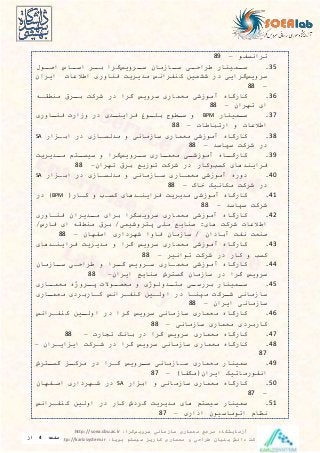 SOEAlab
ترانسفو – 89
35. سمینار طراحی سازمان سرویسگرا بر اساس اصول
سرویسگرایی در ششمین کنفرانس مدیریت فناوری اطلاعات ایران
– 88
36. کارگاه آموزشی معماری سرویس گرا در شرکت برق منطقه
ای تهران – 88
37. سمینار BPM و سطوح بلوغ فرایندی در وزارت فناوری
اطلاعات و ارتباطات – 88
38. کارگاه آموزشی معماری سازمانی و مدلسازی در ابزار SA
در شرکت سپاسد – 88
39. کارگاه آموزشی معماری سرویسگرا و سیستم مدیریت
فرایندهای کسبوکار در شرکت توزیع برق تهران- 88
40. دوره آموزشی معماری سازمانی و مدلسازی در ابزار SA
در شرکت مکانیک خاک – 88
41. کارگاه آموزشی مدیریت فرایندهای کسب و کار( BPM) در
شرکت سپاسد – 88
42. کارگاه آموزشی معماری سرویسگرا برای مدیران فناوری
اطلاعات شرکت های: صنایع ملی پتروشیمی/ برق منطقه ای فارس/
صنعت نفت آبادان / سازمان فاوا شهرداری اصفهان – 88
43. کارگاه آموزشی معماری سرویس گرا و مدیریت فرایندهای
کسب و کار در شرکت توانیر – 88
44. کارگاه آموزشی معماری سرویس گرا و طراحی سازمان
سرویس گرا در سازمان گسترش صنایع ایران- 88
45. سمینار بررسی متدولوژی و محصولات پروژه معماری
سازمانی شرکت مپنا در اولین کنفرانس کاربردی معماری
سازمانی ایران – 88
46. کارگاه معماری سازمانی سرویس گرا در اولین کنفرانس
کاربردی معماری سازمانی – 88
47. کارگاه معماری سرویس گرا در بانک تجارت – 88
48. کارگاه معماری سازمانی سرویس گرا در شرکت ایزایران –
87
49. سمینار معماری سازمانی سرویس گرا در مرکز گسترش
انفورماتیک ایران(مگفا) – 87
50. کارگاه معماری سازمانی و ابزار SA در شهرداری اصفهان
– 87
51. سمینار سیستم های مدیریت گردش کار در اولین کنفرانس
نظام اتوماسیون اداری – 87
آزمایشگاه مرجع معماری سازمانی سرویس‌گرا: http://soea.sbu.ac.ir
صفحه 4 از